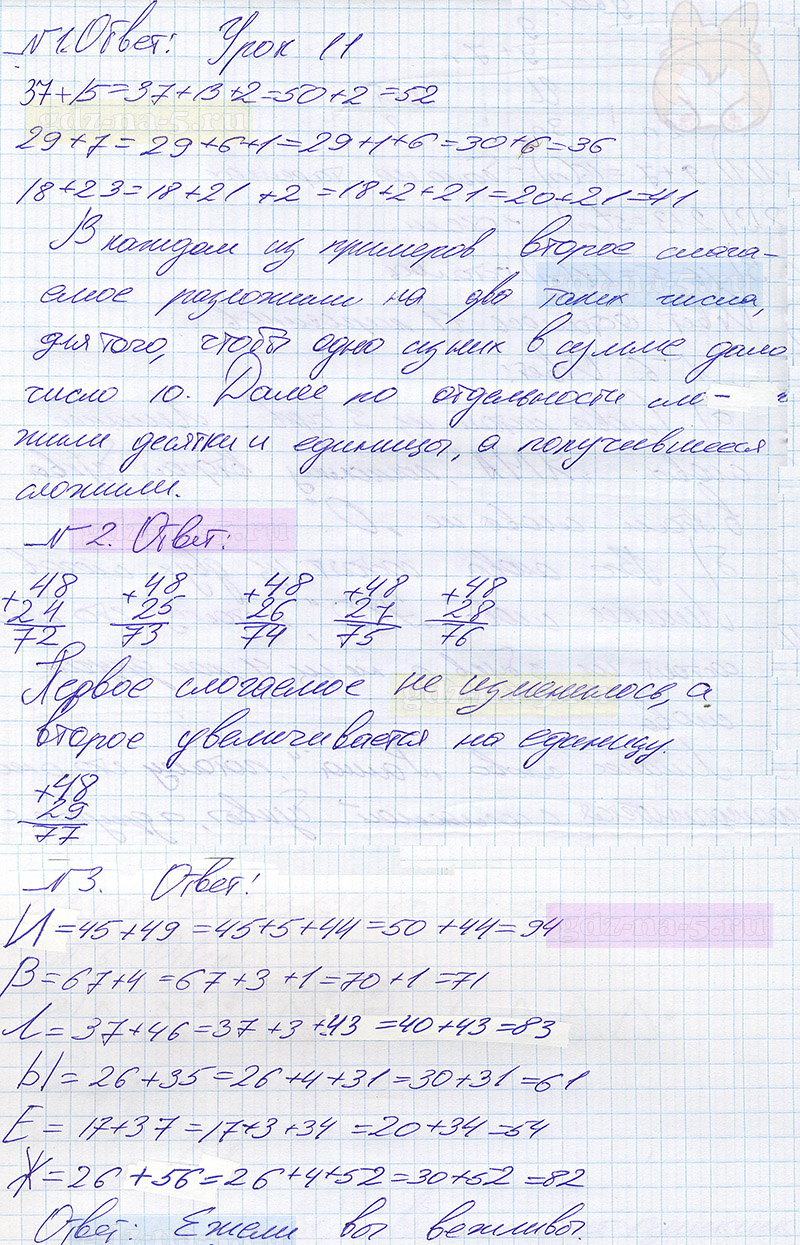 №1. Ответ: Урок 11
37+15=37+13+2=50+2=52
29+7=29+6+1=29+1+6=30+6=36
18+23=18+21+2=18+2+21=20+21=41
В каждом из примеров второе слага-
емое разложили на два таких числа,
для того, чтобы одно из них в сумме дало
число 10. Далее по отдельности сло-
жили десятки и единицы, а получившееся
сложили.
№2. Ответ:
+48 +48 +48 +48 +48
24 25 26 27 28
72 73 74 75 76
Первое слогаемое не изменилось, а
второе увеличивается на единицу.
+48
29
77
№3. Ответ:
gdz-na-5.ru
И=45+49=45+5+44=50+44=94
В=67+4=67+3+1=70+1=71
Л=37+46=37+3+43=40+43=83
Ы=26+35=26+4+31=30+31=61
Е=17+37=17+3+34=20+34=54
Ж=26+56=26+4+52=30+52=82
Ответ: Ежели вы вежливы.